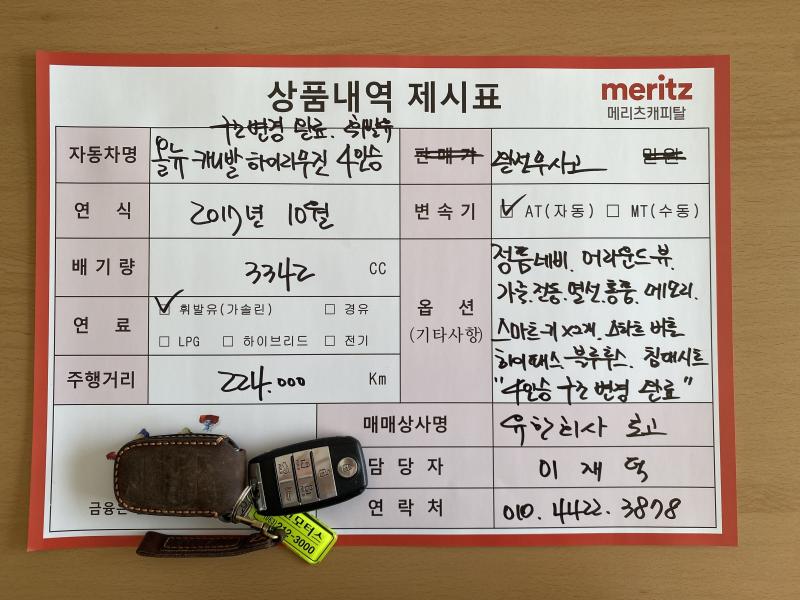 상품내역 제시표
meritz
메리츠캐피탈
구조변경 완료. 휘발유
자동차명
올뉴 카니발 하이리무진 4인승
판매가
완전무사고
만원
연 식
2017년 10월
변속기
AT(자동) MT(수동)
배기량
3342 CC
연 료
휘발유(가솔린) 경유
LPG 하이브리드 전기
주행거리
224.000 Km
옵 션
(기타사항)
정품네비. 어라운드뷰.
가죽.전동.열선.통풍.메모리.
스마트키x2개. 스타트 버튼
하이패스. 블루투스. 침대시트
"4인승 구조변경 완료"
매매상사명
유한회사 최고
담 당 자
이 재 덕
연 락 처
010. 4422. 3878
모터스
212-3000